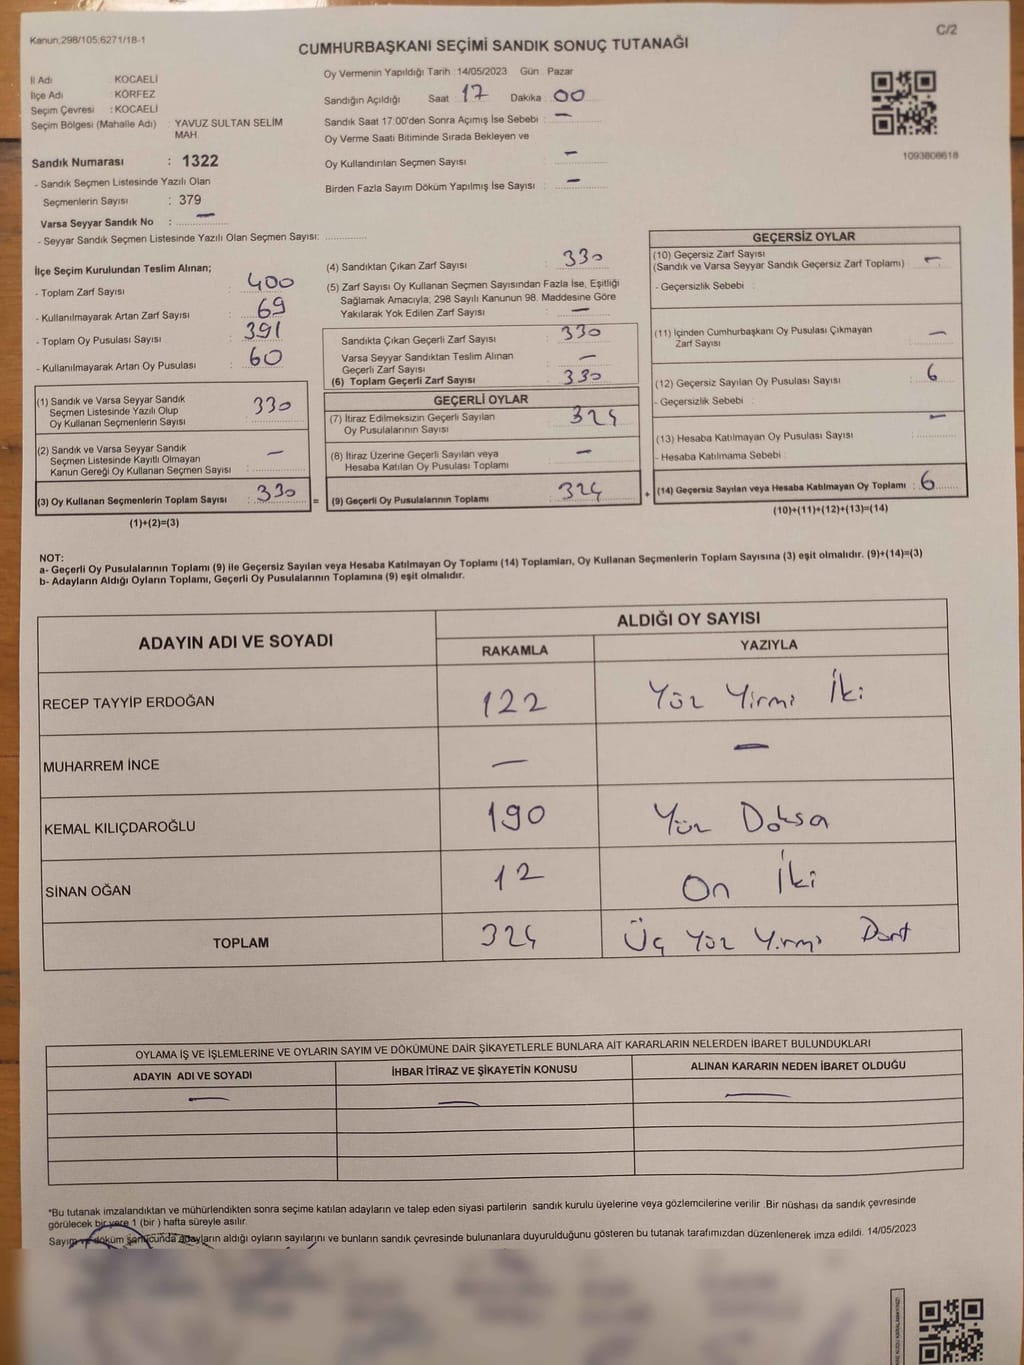 Kanun:298/105;6271/18-1
C/2
CUMHURBAŞKANI SEÇİMİ SANDIK SONUÇ TUTANAĞI
İl Adı : KOCAELİ
İlçe Adı : KÖRFEZ
Seçim Çevresi : KOCAELİ
Seçim Bölgesi (Mahalle Adı) : YAVUZ SULTAN SELİM MAH.
Sandık Numarası : 1322
- Sandık Seçmen Listesinde Yazılı Olan
Seçmenlerin Sayısı : 379
Varsa Seyyar Sandık No : —
- Seyyar Sandık Seçmen Listesinde Yazılı Olan Seçmen Sayısı: ..............
Oy Vermenin Yapıldığı Tarih :14/05/2023 Gün : Pazar
Sandığın Açıldığı Saat : 17 Dakika : 00
Sandık Saat 17:00'den Sonra Açımış İse Sebebi : —
Oy Verme Saati Bitiminde Sırada Bekleyen ve
Oy Kullandırılan Seçmen Sayısı : —
Birden Fazla Sayım Döküm Yapılmış İse Sayısı : —
1093808618
İlçe Seçim Kurulundan Teslim Alınan;
- Toplam Zarf Sayısı : 400
- Kullanılmayarak Artan Zarf Sayısı : 69
- Toplam Oy Pusulası Sayısı : 391
- Kullanılmayarak Artan Oy Pusulası : 60
(1) Sandık ve Varsa Seyyar Sandık
Seçmen Listesinde Yazılı Olup
Oy Kullanan Seçmenlerin Sayısı : 330
(2) Sandık ve Varsa Seyyar Sandık
Seçmen Listesinde Kayıtlı Olmayan
Kanun Gereği Oy Kullanan Seçmen Sayısı : —
(3) Oy Kullanan Seçmenlerin Toplam Sayısı : 330 =
(1)+(2)=(3)
(4) Sandıktan Çıkan Zarf Sayısı : 330
(5) Zarf Sayısı Oy Kullanan Seçmen Sayısından Fazla İse, Eşitliği
Sağlamak Amacıyla; 298 Sayılı Kanunun 98. Maddesine Göre
Yakılarak Yok Edilen Zarf Sayısı : —
Sandıkta Çıkan Geçerli Zarf Sayısı : 330
Varsa Seyyar Sandıktan Teslim Alınan
Geçerli Zarf Sayısı : —
(6) Toplam Geçerli Zarf Sayısı : 330
GEÇERLİ OYLAR
(7) İtiraz Edilmeksizin Geçerli Sayılan
Oy Pusulalarının Sayısı : 324
(8) İtiraz Üzerine Geçerli Sayılan veya
Hesaba Katılan Oy Pusulası Toplamı : —
(9) Geçerli Oy Pusulalarının Toplamı : 324 +
GEÇERSİZ OYLAR
(10) Geçersiz Zarf Sayısı
(Sandık ve Varsa Seyyar Sandık Geçersiz Zarf Toplamı) : —
- Geçersizlik Sebebi :
(11) İçinden Cumhurbaşkanı Oy Pusulası Çıkmayan
Zarf Sayısı : —
(12) Geçersiz Sayılan Oy Pusulası Sayısı : 6
- Geçersizlik Sebebi :
(13) Hesaba Katılmayan Oy Pusulası Sayısı : —
- Hesaba Katılmama Sebebi :
(14) Geçersiz Sayılan veya Hesaba Katılmayan Oy Toplamı : 6
(10)+(11)+(12)+(13)=(14)
NOT:
a- Geçerli Oy Pusulalarının Toplamı (9) ile Geçersiz Sayılan veya Hesaba Katılmayan Oy Toplamı (14) Toplamları, Oy Kullanan Seçmenlerin Toplam Sayısına (3) eşit olmalıdır. (9)+(14)=(3)
b- Adayların Aldığı Oyların Toplamı, Geçerli Oy Pusulalarının Toplamına (9) eşit olmalıdır.
ADAYIN ADI VE SOYADI ALDIĞI OY SAYISI
RAKAMLA YAZIYLA
RECEP TAYYİP ERDOĞAN 122 Yüz Yirmi İki
MUHARREM İNCE — —
KEMAL KILIÇDAROĞLU 190 Yüz Doksa
SİNAN OĞAN 12 On İki
TOPLAM 324 Üç Yüz Yirmi Dört
OYLAMA İŞ VE İŞLEMLERİNE VE OYLARIN SAYIM VE DÖKÜMÜNE DAİR ŞİKAYETLERLE BUNLARA AİT KARARLARIN NELERDEN İBARET BULUNDUKLARI
ADAYIN ADI VE SOYADI İHBAR İTİRAZ VE ŞİKAYETİN KONUSU ALINAN KARARIN NEDEN İBARET OLDUĞU
— — —
*Bu tutanak imzalandıktan ve mühürlendikten sonra seçime katılan adayların ve talep eden siyasi partilerin sandık kurulu üyelerine veya gözlemcilerine verilir .Bir nüshası da sandık çevresinde
görülecek bir yere 1 (bir ) hafta süreyle asılır.
Sayım ve döküm sonucunda adayların aldığı oyların sayılarını ve bunların sandık çevresinde bulunanlara duyurulduğunu gösteren bu tutanak tarafımızdan düzenlenerek imza edildi. 14/05/2023